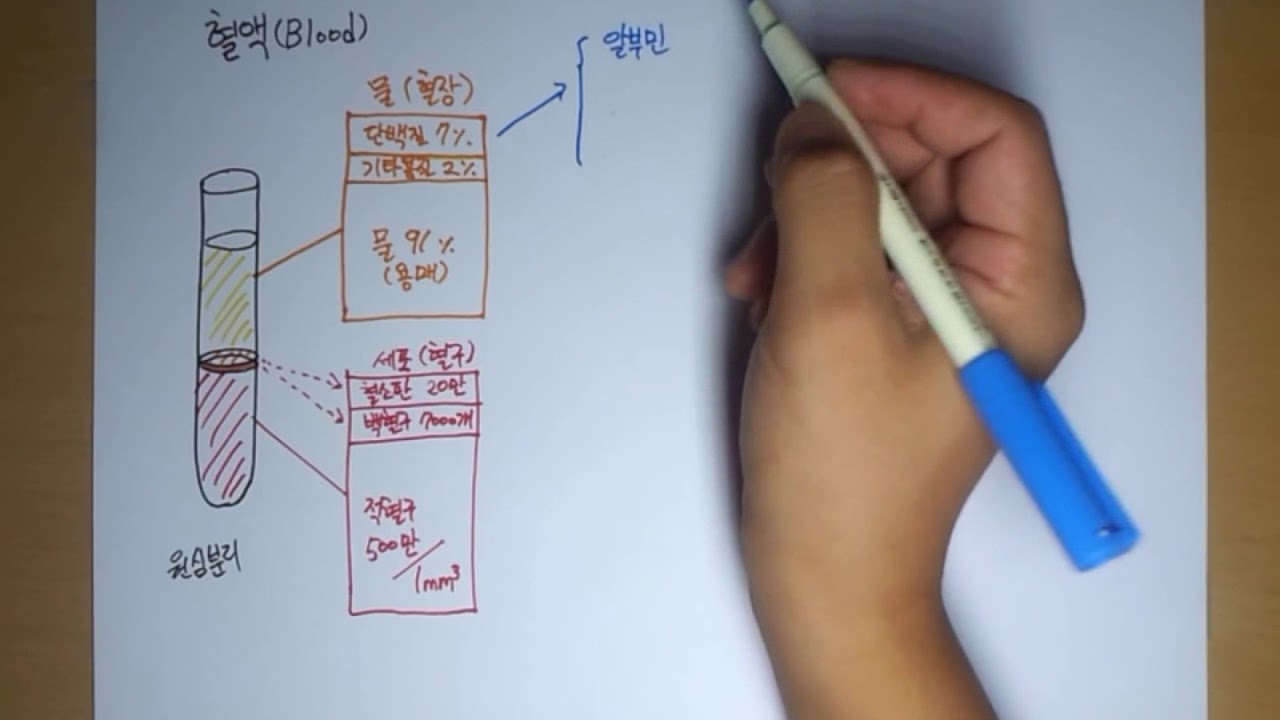 혈액(Blood)
물 (혈장)
단백질 7%
기타물질 2%
물 91%
(용매)
알부민
세포 (혈구)
혈소판 20만
백혈구 7000개
적혈구
500만
/1mm³
원심분리